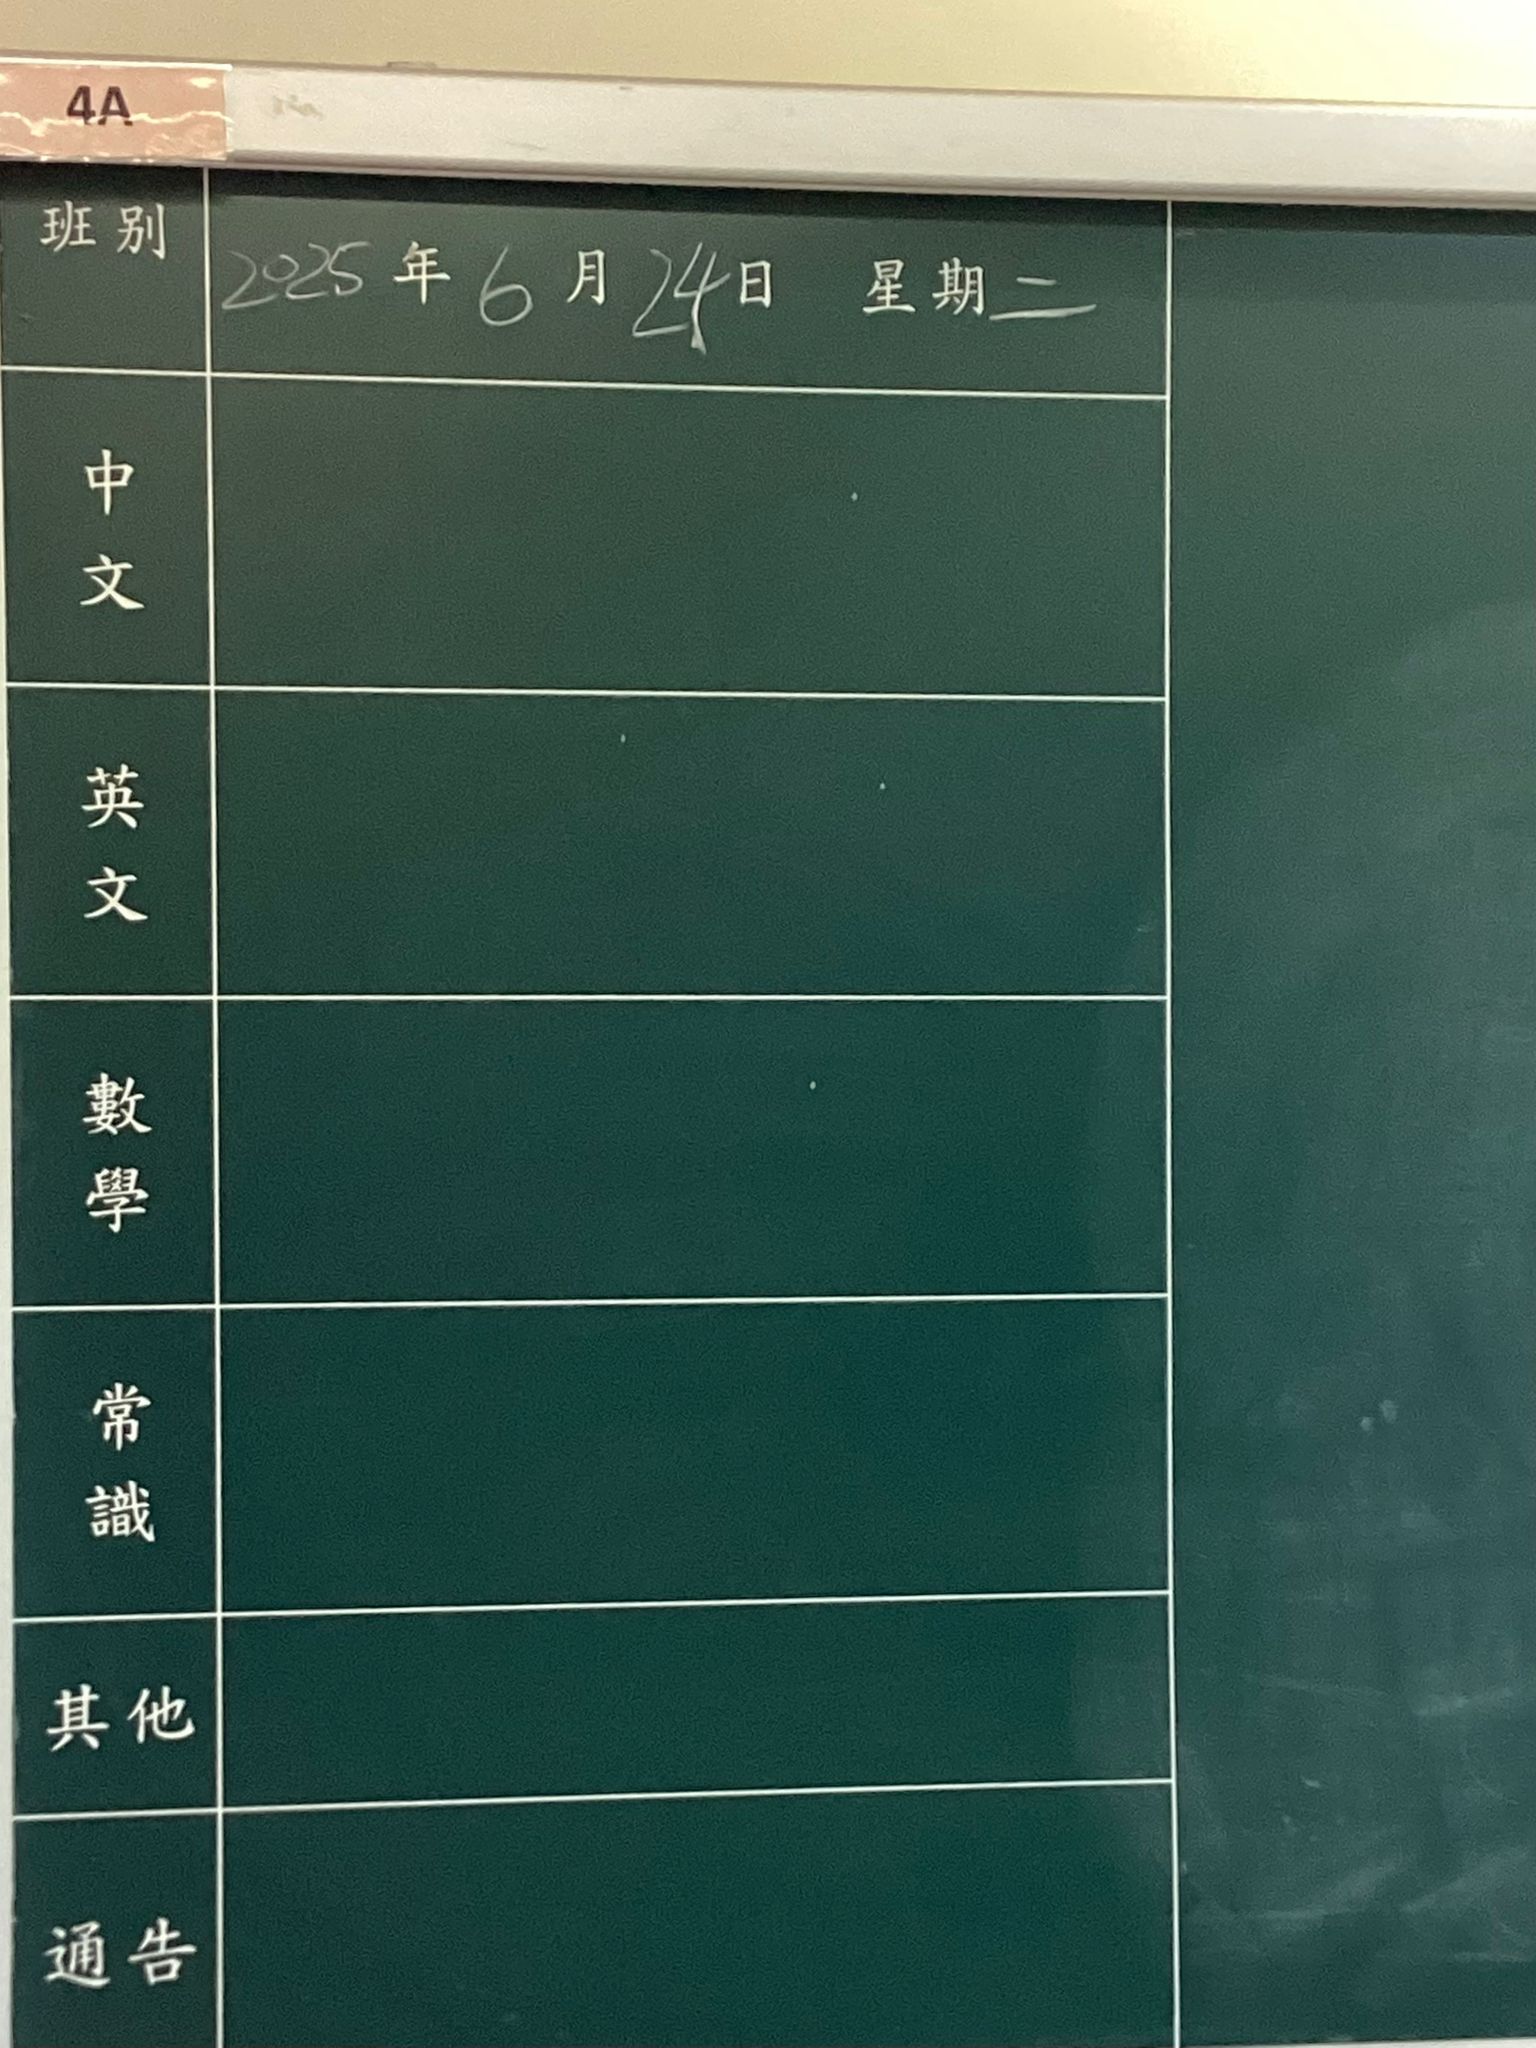 4A
班別
2025年6月24日 星期二
中文
英文
數學
常識
其他
通告